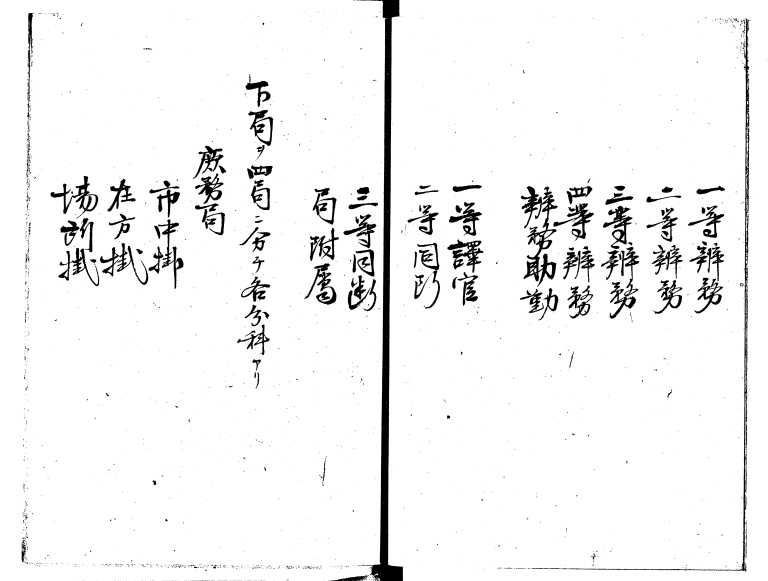 一等辨務
二等辨務
三等辨務
四等辨務
辨務助勤
一等譯官
二等同断
三等同断
局附属
下局ヲ四局ニ分チ各分科アリ
庶務局
市中掛
在方掛
場所掛